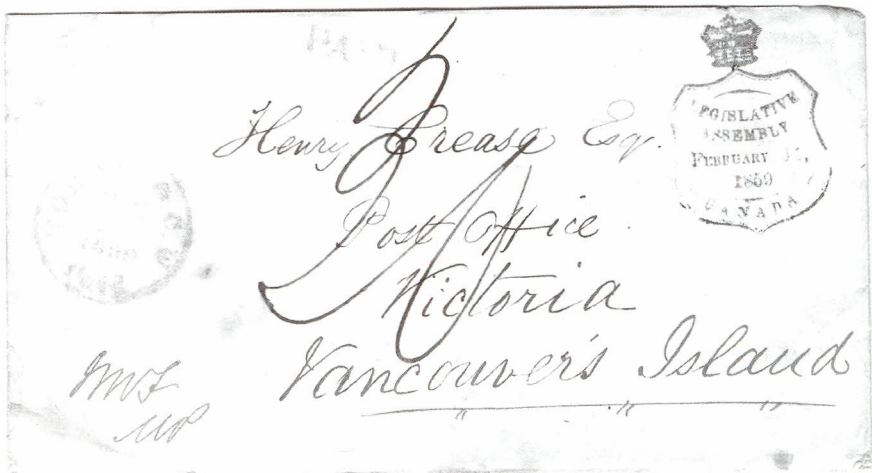 LEGISLATIVE
ASSEMBLY
FEBRUARY
1859
CANADA
Henry Crease Esqr.
Post Office
Victoria
Vancouver's Island
MP